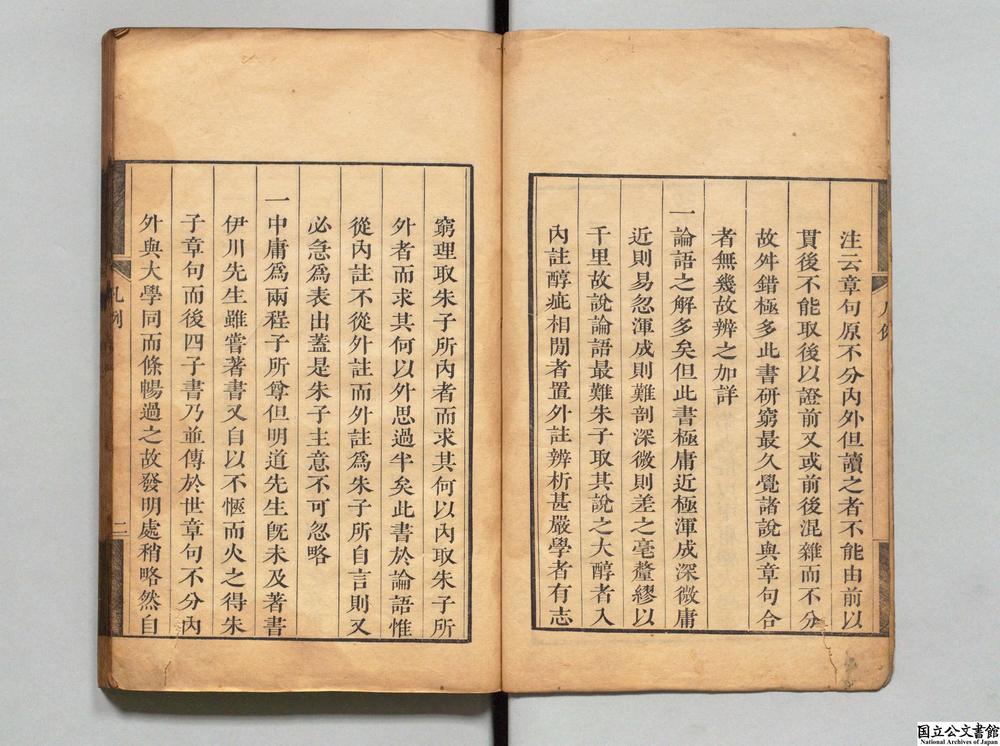 注云章句原不分內外但讀之者不能由前以
貫後不能取後以證前又或前後混雜而不分
故舛錯極多此書研窮最久覺諸說與章句合
者無幾故辨之加詳
一論語之解多矣但此書極庸近極渾成深微庸
近則易忽渾成則難剖深微則差之毫釐繆以
千里故說論語最難朱子取其說之大醇者入
內註醇疵相閒者置外註辨析甚嚴學者有志
窮理取朱子所內者而求其何以內取朱子所
外者而求其何以外思過半矣此書於論語惟
從內註不從外註而外註為朱子所自言則又
必急為表出蓋是朱子主意不可忽略
一中庸為兩程子所尊但明道先生既未及著書
伊川先生雖嘗著書又自以不愜而火之得朱
子章句而後四子書乃並傳於世章句不分內
外與大學同而條暢過之故發明處稍略然自
凡例
二
国立公文書館
National Archives of Japan